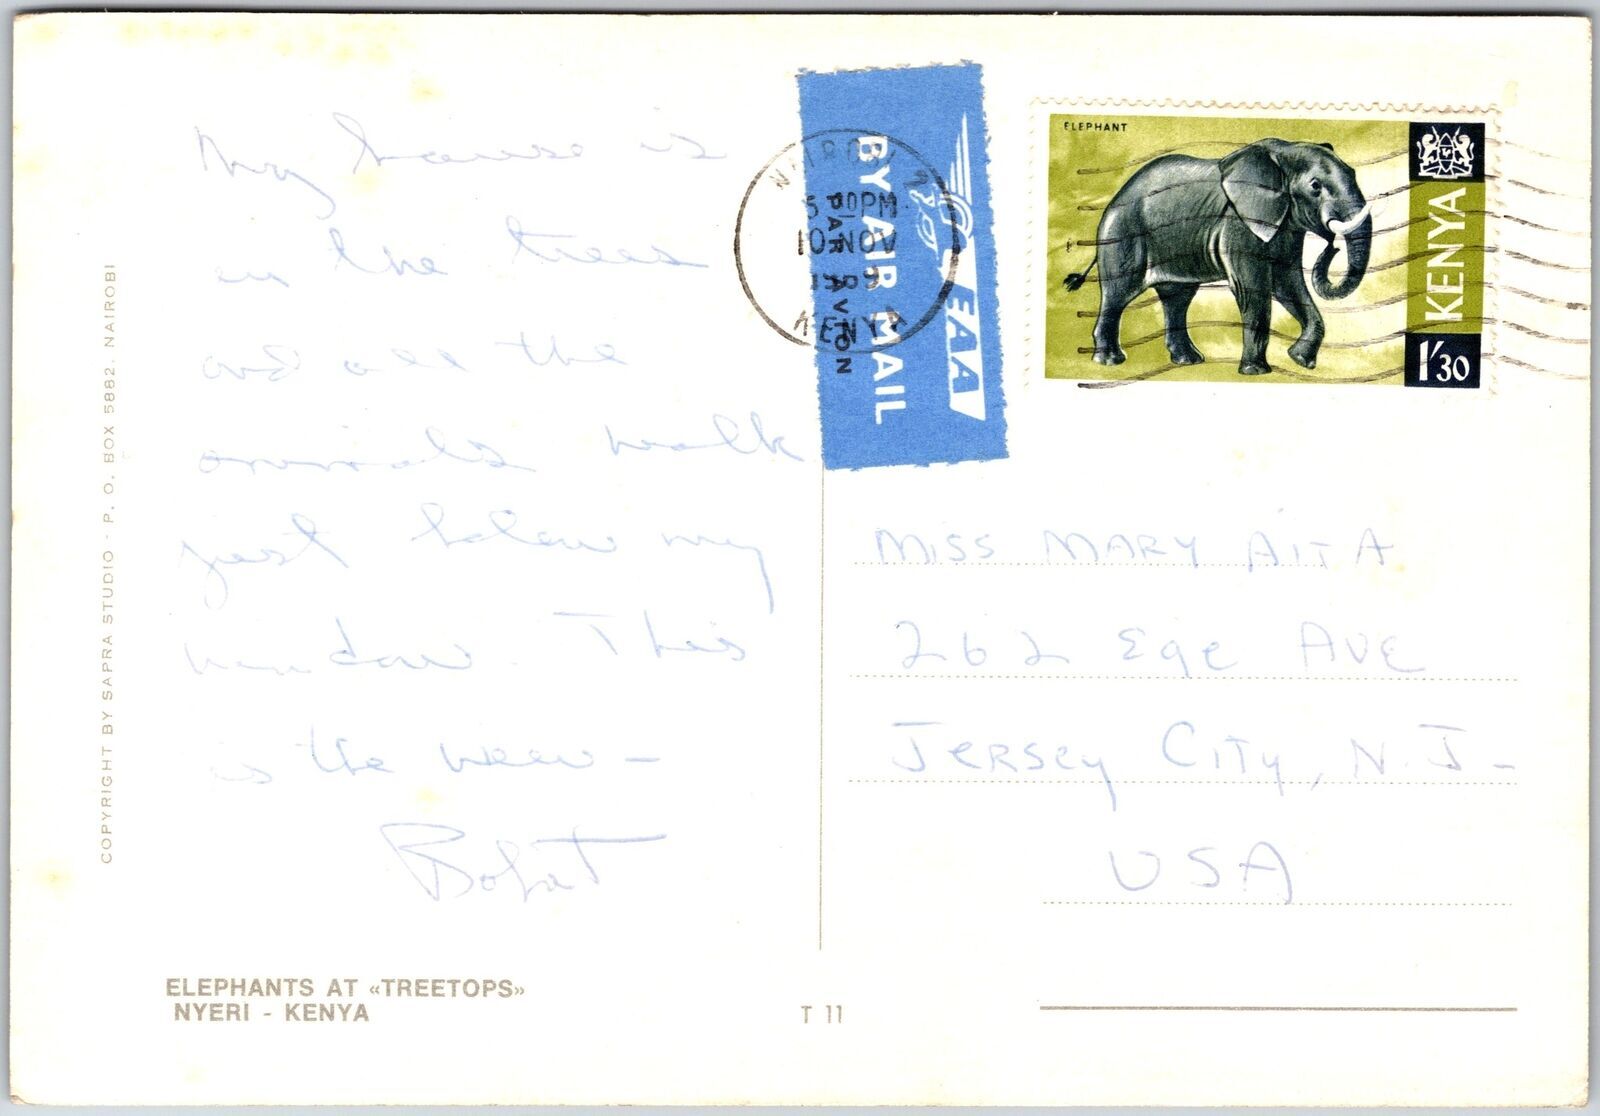 My house is
in the trees
and all the
animals walk
just below my
window. This
is the view -
COPYRIGHT BY SAPRA STUDIO - P. O. BOX 5882, NAIROBI
ELEPHANTS AT «TREETOPS»
NYERI - KENYA
T 11
BY AIR MAIL
PAR AVION
EAA
NAIROBI
10 NOV
KENYA
ELEPHANT
KENYA
1/30
MISS MARY AITA
262 Ege AVE
JERSEY CITY, N.J-
USA